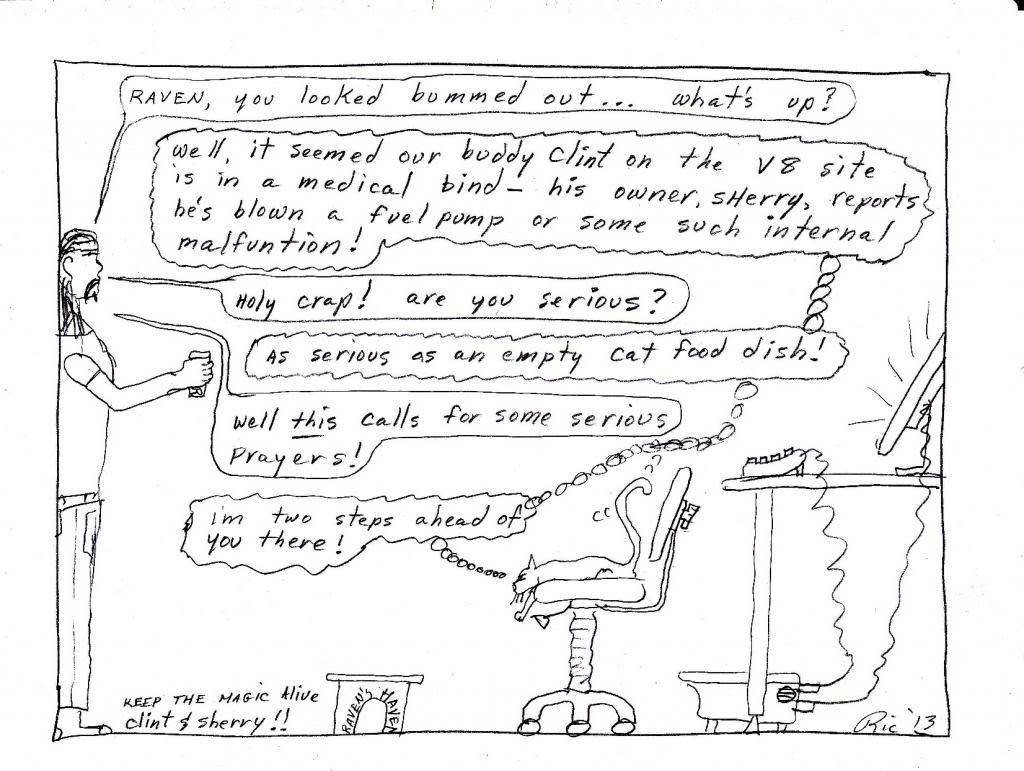 RAVEN, you looked bummed out... what's up?
Well, it seemed our buddy Clint on the V8 site
is in a medical bind - his owner, SHerry, reports
he's blown a fuel pump or some such internal
malfuntion!
Holy crap! are you serious?
As serious as an empty cat food dish!
Well this calls for some serious
Prayers!
im two steps ahead of
you there!
KEEP THE MAGIC Alive
Clint & Sherry!!
RAVEN'S HAVEN
Ric '13